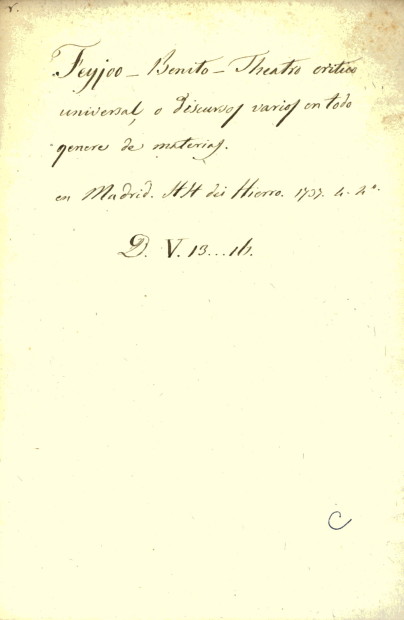 Feyjoo - Benito - Theatro critico
universal, o discursos varios en todo
genere de materias.
en Madrid. HH dei Hierro. 1737. 4. 4°.
D. V. 13...16.
C